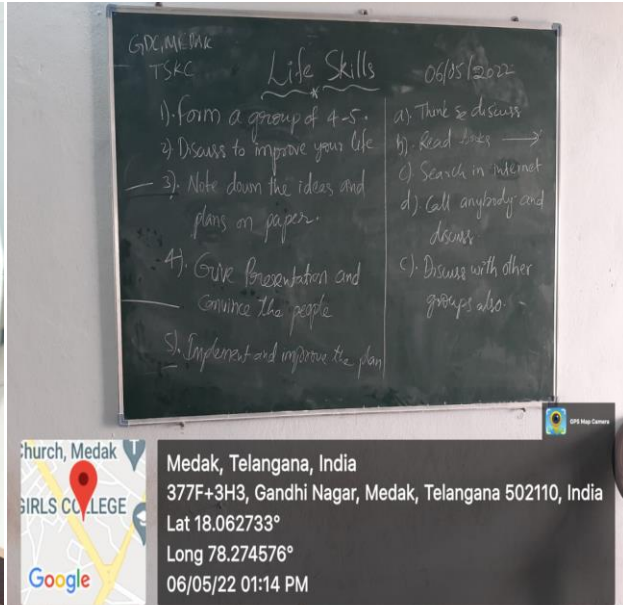 GDC, MEDAK
TSKC
Life Skills
06/05/2022
1). Form a group of 4-5.
2) Discuss to improve your life
3). Note down the ideas and
plans on paper.
4). Give Presentation and
Convince the people
5). Implement and improve the plan
a). Think & discuss
b). Read books
c). Search in internet
d). Call anybody and
discuss
c). Discuss with other
groups also.
GPS Map Camera
Church, Medak
GIRLS COLLEGE
Google
Medak, Telangana, India
377F+3H3, Gandhi Nagar, Medak, Telangana 502110, India
Lat 18.062733°
Long 78.274576°
06/05/22 01:14 PM